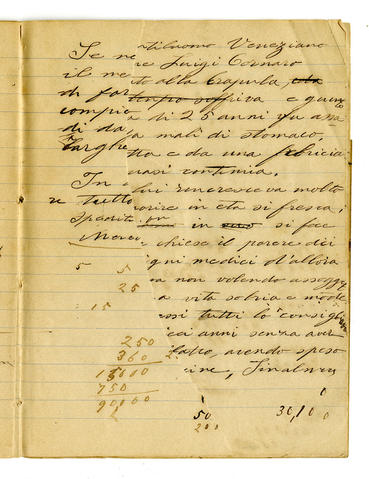 Se ne
il me
di far
compia
di da
targhe
In
re tutto
spedito
Merco
tiluomo Veneziano
re Luigi Cornaro
to alla Crapula,
tempo soffriva e
a di 25 anni fu assa
a mali di stomaco,
tta e da una febricia
uasi continua.
lui rincresceva molto
morire in età si fresca,
in si fece
chiese il parere dei
igni medici d'allora
a non volendo
a vita sobria e mode
ssi tutti lo consigli
eci anni senza aver
fatto, avendo speso
cine, Finalmen
5 5
25
15
250
360
15000
750
90000
50
200
30,00